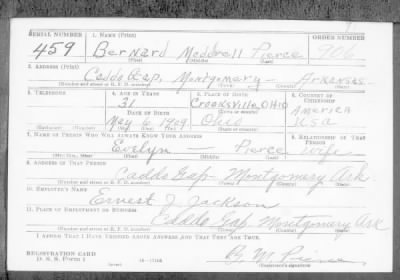 SERIAL NUMBER 1. NAME (Print) ORDER NUMBER
459 Bernard Pierce
(First) (Middle) (Last)
2. ADDRESS (Print)
Caddo Gap, Montgomery - Arkansas
(Number and street or R. F. D. number) (Town) (County) (State)
3. TELEPHONE 4. AGE IN YEARS 5. PLACE OF BIRTH 6. COUNTRY OF CITIZENSHIP
31 Crooksville, Ohio America
DATE OF BIRTH
May 6 1909 Ohio USA
(Exchange) (Number) (Mo.) (Day) (Yr.) (State or country)
7. NAME OF PERSON WHO WILL ALWAYS KNOW YOUR ADDRESS 8. RELATIONSHIP OF THAT PERSON
Evelyn — Pierce Wife
(Mr., Mrs., Miss) (First) (Middle) (Last)
9. ADDRESS OF THAT PERSON
Caddo Gap - Montgomery Ark.
(Number and street or R. F. D. number) (Town) (County) (State)
10. EMPLOYER'S NAME
Ernest J. Jackson
11. PLACE OF EMPLOYMENT OR BUSINESS
Caddo Gap Montgomery Ark
(Number and street or R. F. D. number) (Town) (County) (State)
I AFFIRM THAT I HAVE VERIFIED ABOVE ANSWERS AND THAT THEY ARE TRUE.
REGISTRATION CARD
D. S. S. Form 1 (over) 16-17105 (Registrant's signature)
B. M. Pierce